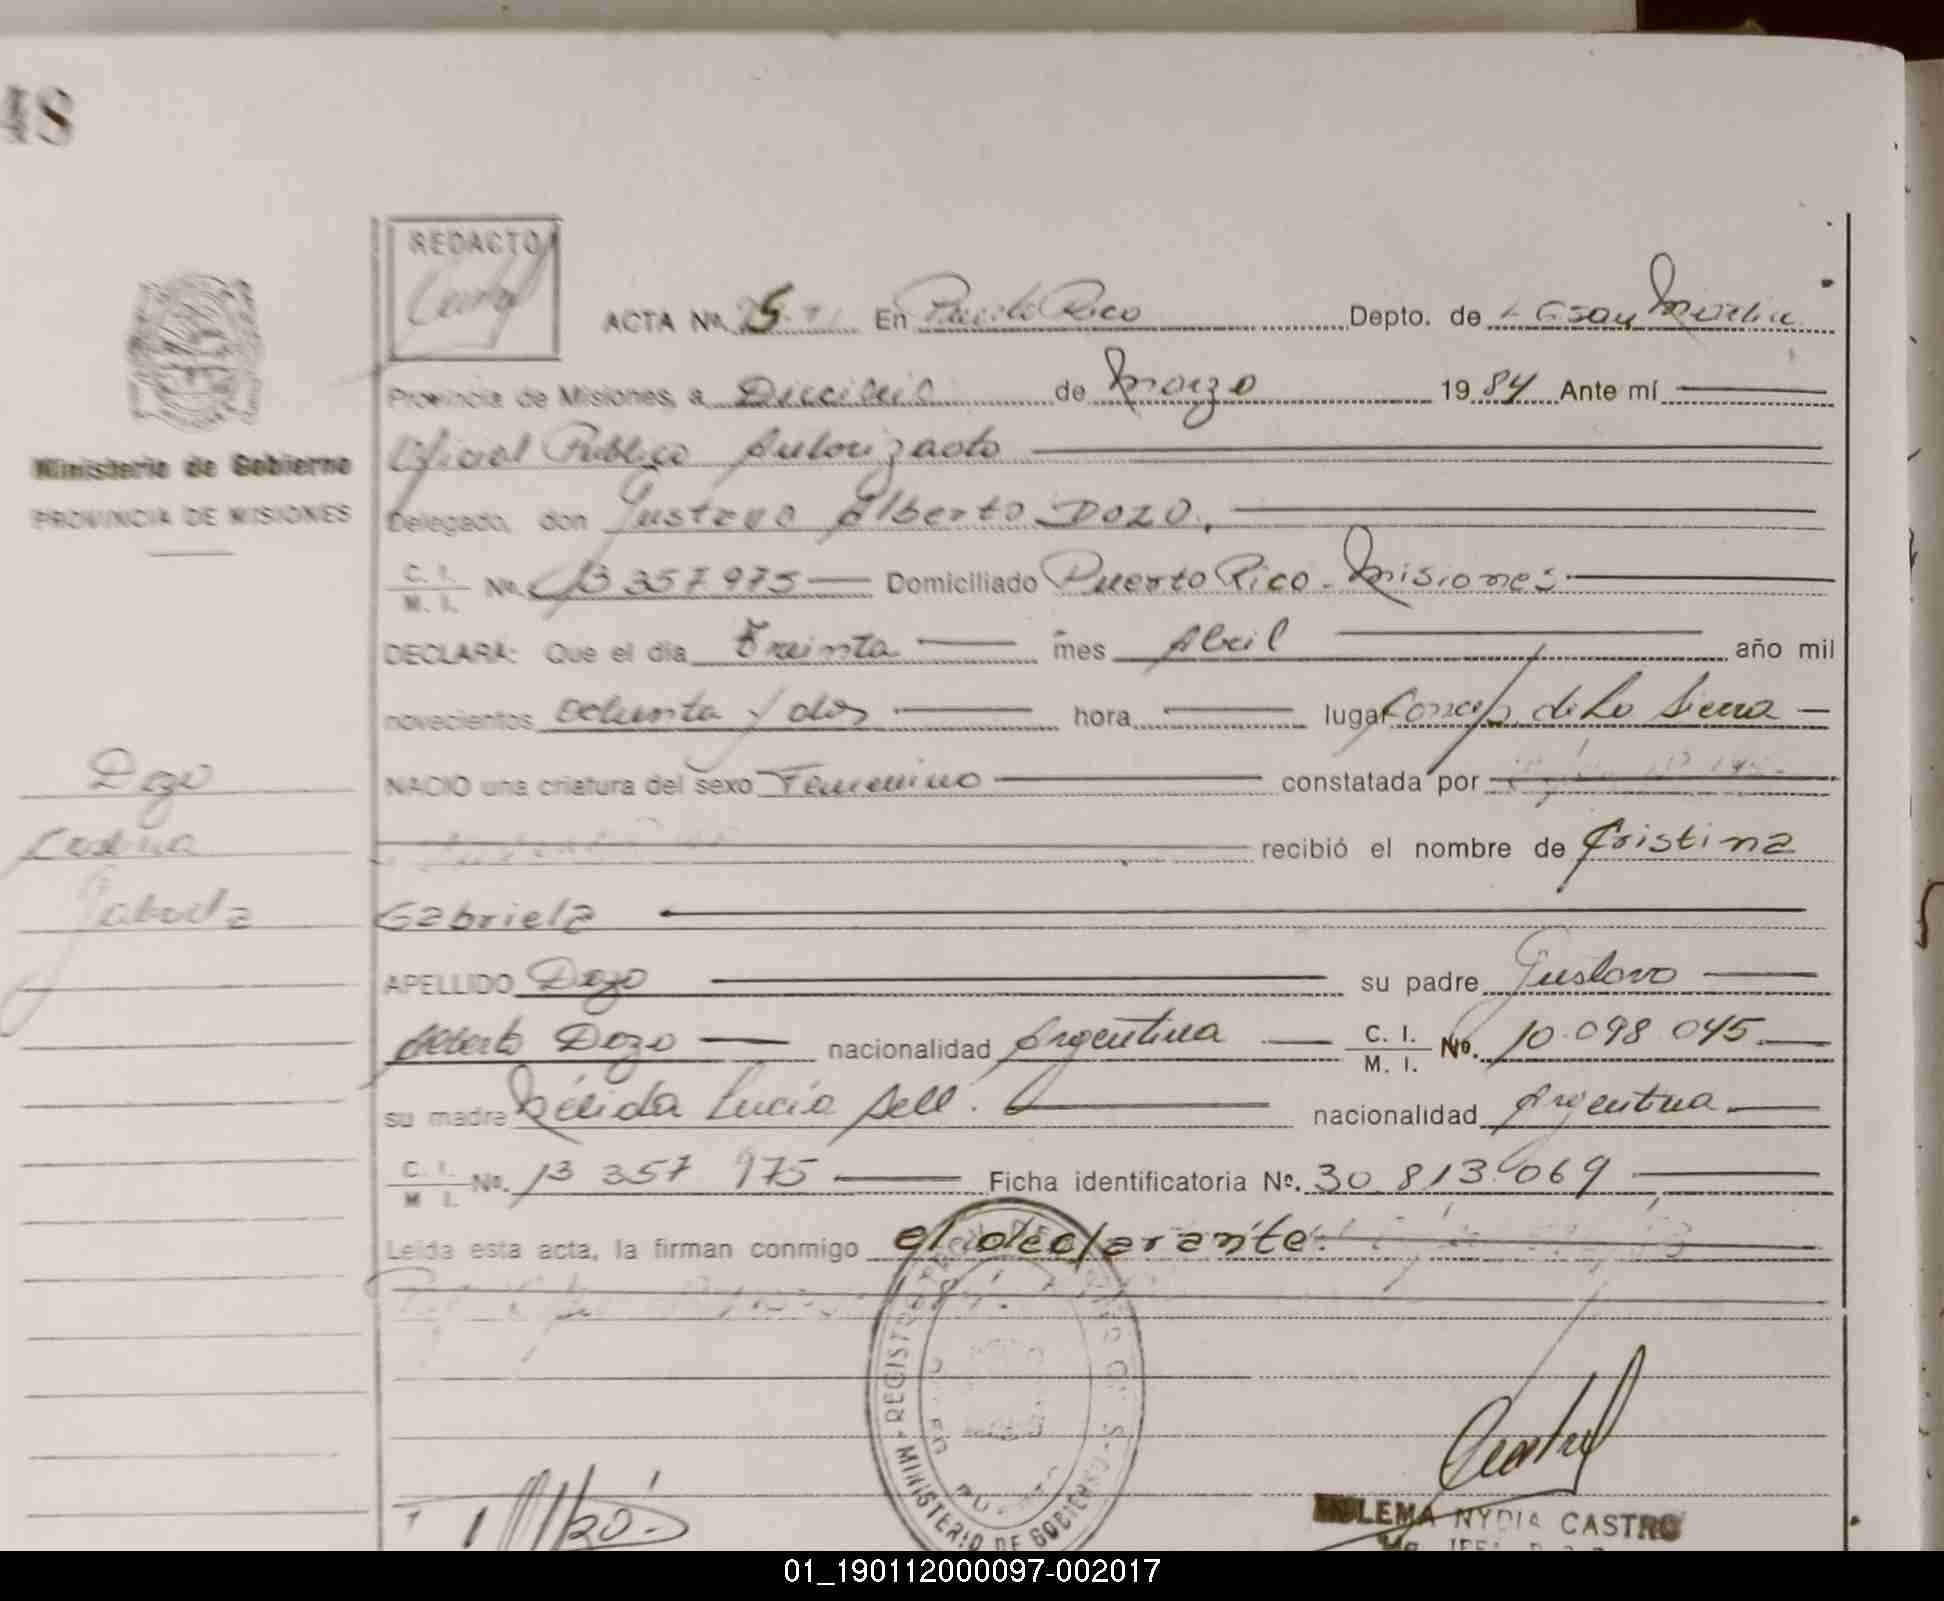 48
REDACTO
ACTA Nº En Puerto Rico Depto. de L. G. San Martin
Provincia de Misiones, a Dieciseis de Marzo 1984 Ante mí
Oficial Público Autorizado
Delegado, don Gustavo Alberto Dozo.
C. I. / M. I. Nº. 13 357 975 Domiciliado Puerto Rico - Misiones
DECLARA: Que el día Treinta mes Abril año mil
novecientos ochenta y dos hora lugar Concep. de La Sierra
NACIO una criatura del sexo Femenino constatada por
recibió el nombre de Cristina
Gabriela
APELLIDO Dozo su padre Gustavo
Alberto Dozo nacionalidad Argentina C. I. / M. I. Nº. 10.098.045
su madre Nélida Lucía Sell. nacionalidad Argentina
C. I. / M. I. Nº. 13 357 975 Ficha identificatoria Nº. 30.813.069
Leída esta acta, la firman conmigo el declarante.
Ministerio de Gobierno
PROVINCIA DE MISIONES
Dozo
Cristina
Gabriela
REGISTRO
MINISTERIO DE GOBIERNO
LEMA NYDIA CASTRO
01_190112000097-002017